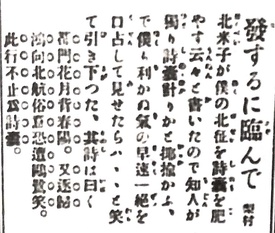 發するに臨んで
梨村
北米子が僕の北征を詩嚢を肥
やす云々と書いたので知人が
獨り詩嚢計りかと揶揄かふ、
で僕も利かぬ氣の早速一絶を
口占して見せたらハヽヽと笑
て引き下つた、其詩は曰く
都門花月背春陽。又逐歸
鴻向北航俗意恐遭鴎鷺笑。
此行不止為詩嚢。